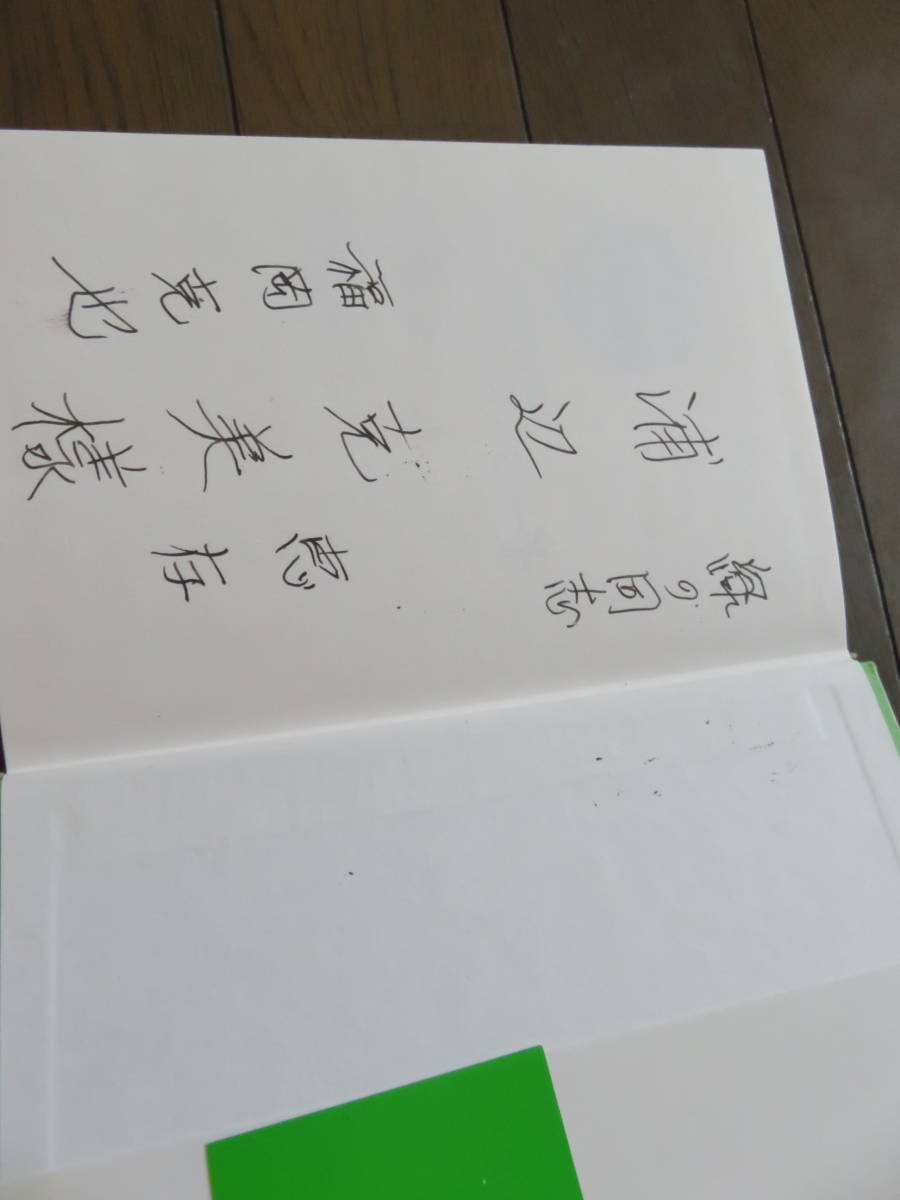 緑の同志
恵存
浦辺克美様
福岡克也